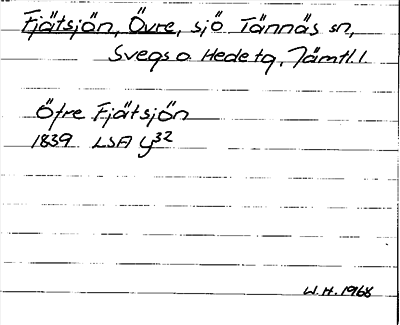 Fjätsjön, Övre, sjö Tännäs sn,
Svegs o. Hede tg, Jämtl. l.
Öfre Fjätsjön
1839 LSA y32
W.H. 1968